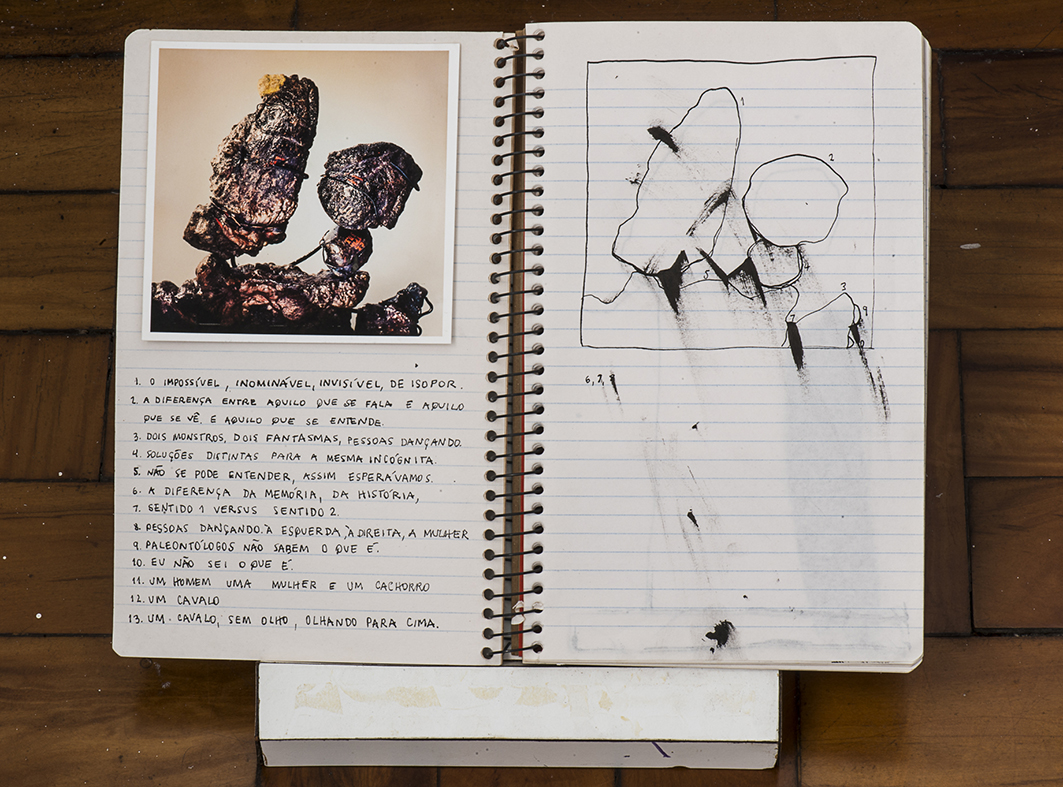 1. O IMPOSSÍVEL, INOMINÁVEL, INVISÍVEL, DE ISOPOR.
2. A DIFERENÇA ENTRE AQUILO QUE SE FALA E AQUILO
QUE SE VÊ, E AQUILO QUE SE ENTENDE.
3. DOIS MONSTROS, DOIS FANTASMAS, PESSOAS DANÇANDO.
4. SOLUÇÕES DISTINTAS PARA A MESMA INCÓGNITA.
5. NÃO SE PODE ENTENDER, ASSIM ESPERÁVAMOS.
6. A DIFERENÇA DA MEMÓRIA, DA HISTÓRIA,
7. SENTIDO 1 VERSUS SENTIDO 2.
8. PESSOAS DANÇANDO À ESQUERDA, À DIREITA, A MULHER
9. PALEONTÓLOGOS NÃO SABEM O QUE É.
10. EU NÃO SEI O QUE É.
11. UM HOMEM UMA MULHER E UM CACHORRO
12. UM CAVALO
13. UM CAVALO, SEM OLHO, OLHANDO PARA CIMA.
1
2
5
3
9
6, 7,